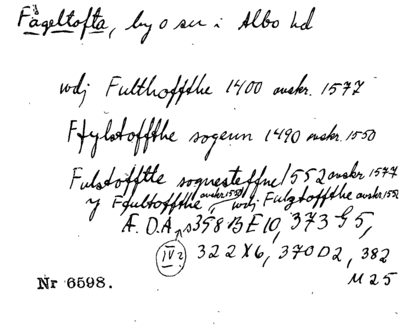 Fågeltofta, by o sn i Albo hd
udj Fulthoffthe 1400 avskr. 1577
Ffylstoffthe sogenn 1490 avskr. 1550
Fulstofftte sognesteffne 1552 avskr. 1577
y Ffultoffthe avskr. 1550, udj Fulgtoffthe avskr. 155
Æ. D. A. s 358 B E 10, 373 G 5,
IV? 322 X 6, 370 D 2, 382
Nr 6598. M 25